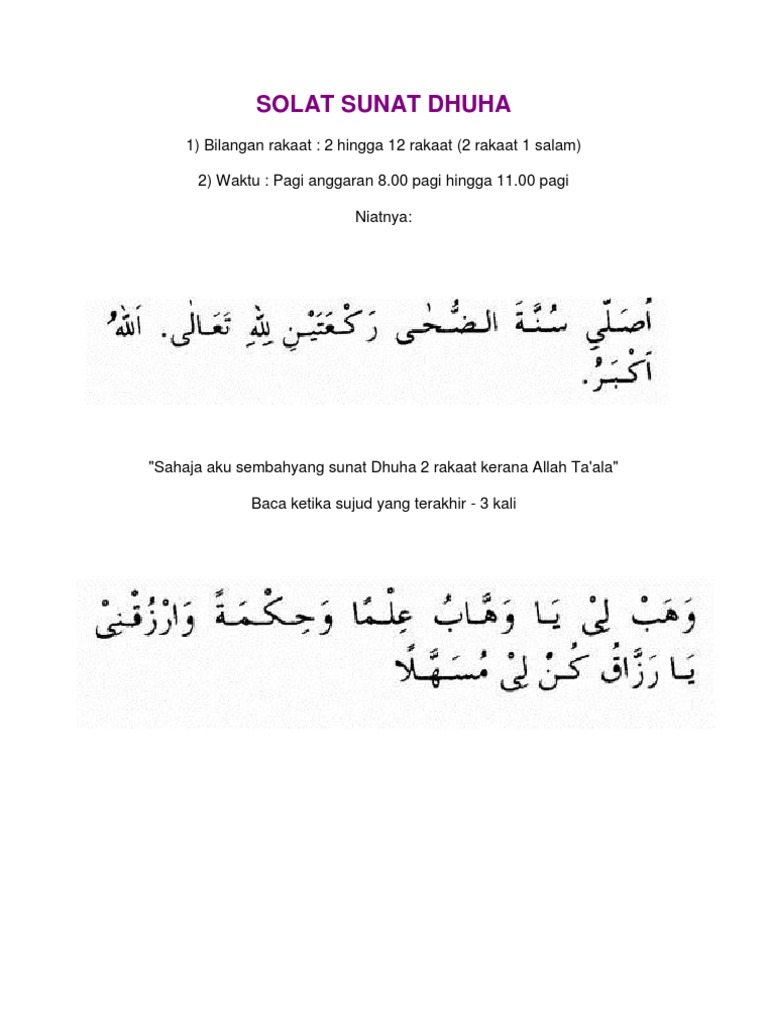 SOLAT SUNAT DHUHA
1) Bilangan rakaat : 2 hingga 12 rakaat (2 rakaat 1 salam)
2) Waktu : Pagi anggaran 8.00 pagi hingga 11.00 pagi
Niatnya:
اُصَلِّي سُنَّةَ الضُّحٰى رَكْعَتَيْنِ لِلّٰهِ تَعَالٰى. اَللّٰهُ
اَكْبَرُ.
"Sahaja aku sembahyang sunat Dhuha 2 rakaat kerana Allah Ta'ala"
Baca ketika sujud yang terakhir - 3 kali
وَهَبْ لِيْ يَا وَهَّابُ عِلْمًا وَحِكْمَةً وَارْزُقْنِيْ
يَا رَزَّاقُ كُنْ لِيْ مُسَهَّلًا